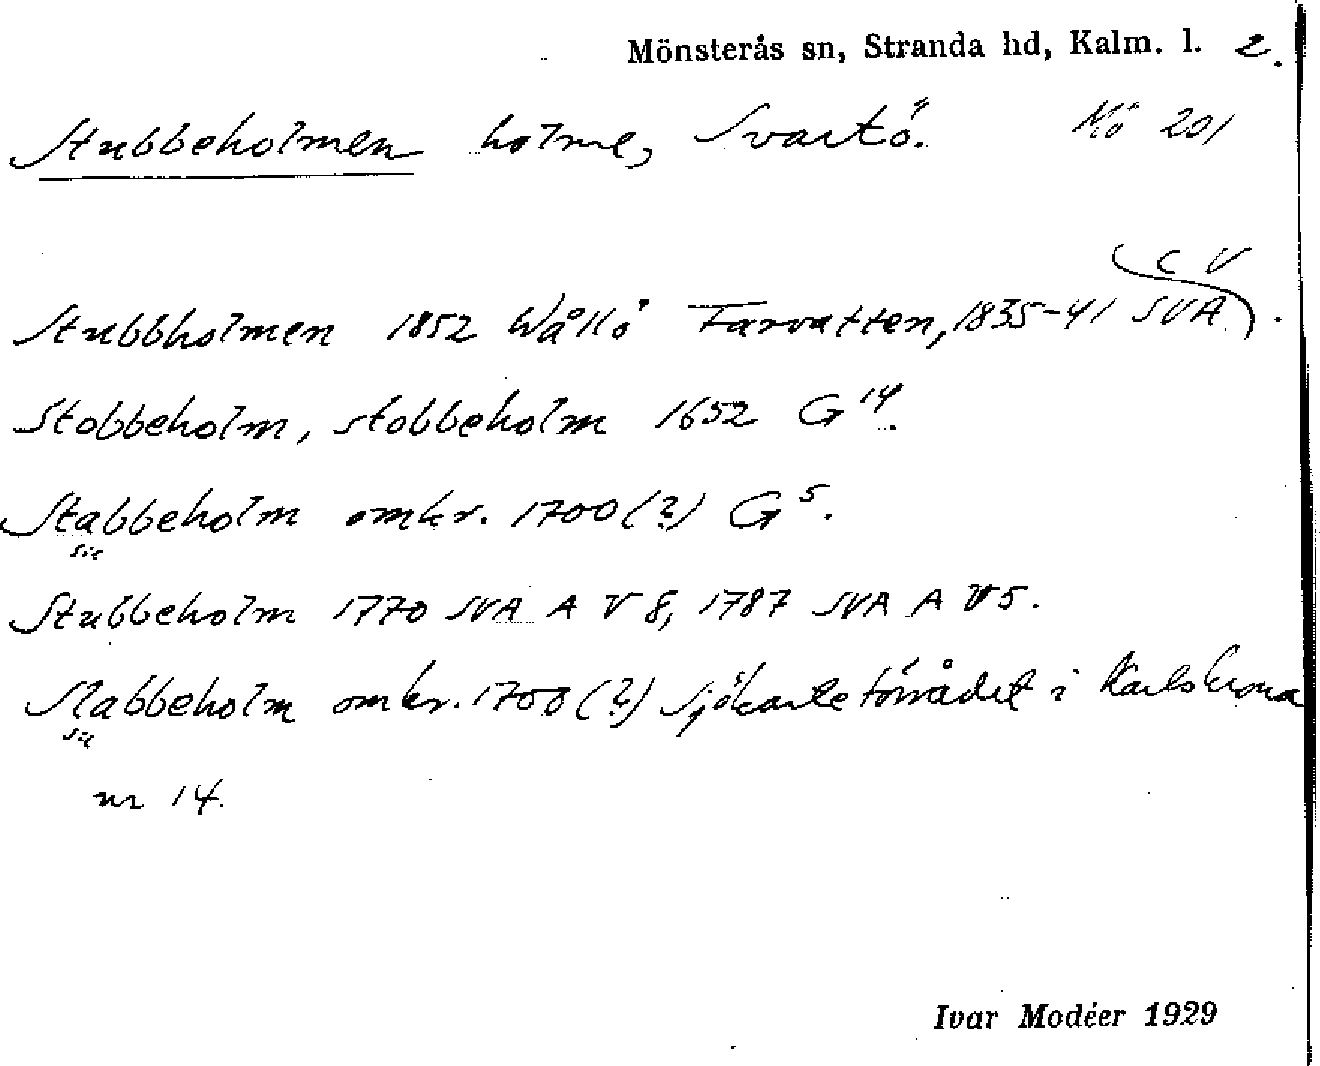 Mönsterås sn, Stranda hd, Kalm. l. 2.
Stubbeholmen holme, Svartö. Mö 201
C V
Stubbholmen 1852 Wållö Farvatten, 1835-41 SVA).
Stobbeholm, stobbeholm 1652 G 14.
Stabbeholm omkr. 1700(?) G 5.
sic
Stubbeholm 1770 SVA A V 8, 1787 SVA A V 5.
Slabbeholm omkr. 1700(?) Sjökarteförrådet i Karlskrona
sic
nr 14.
Ivar Modéer 1929